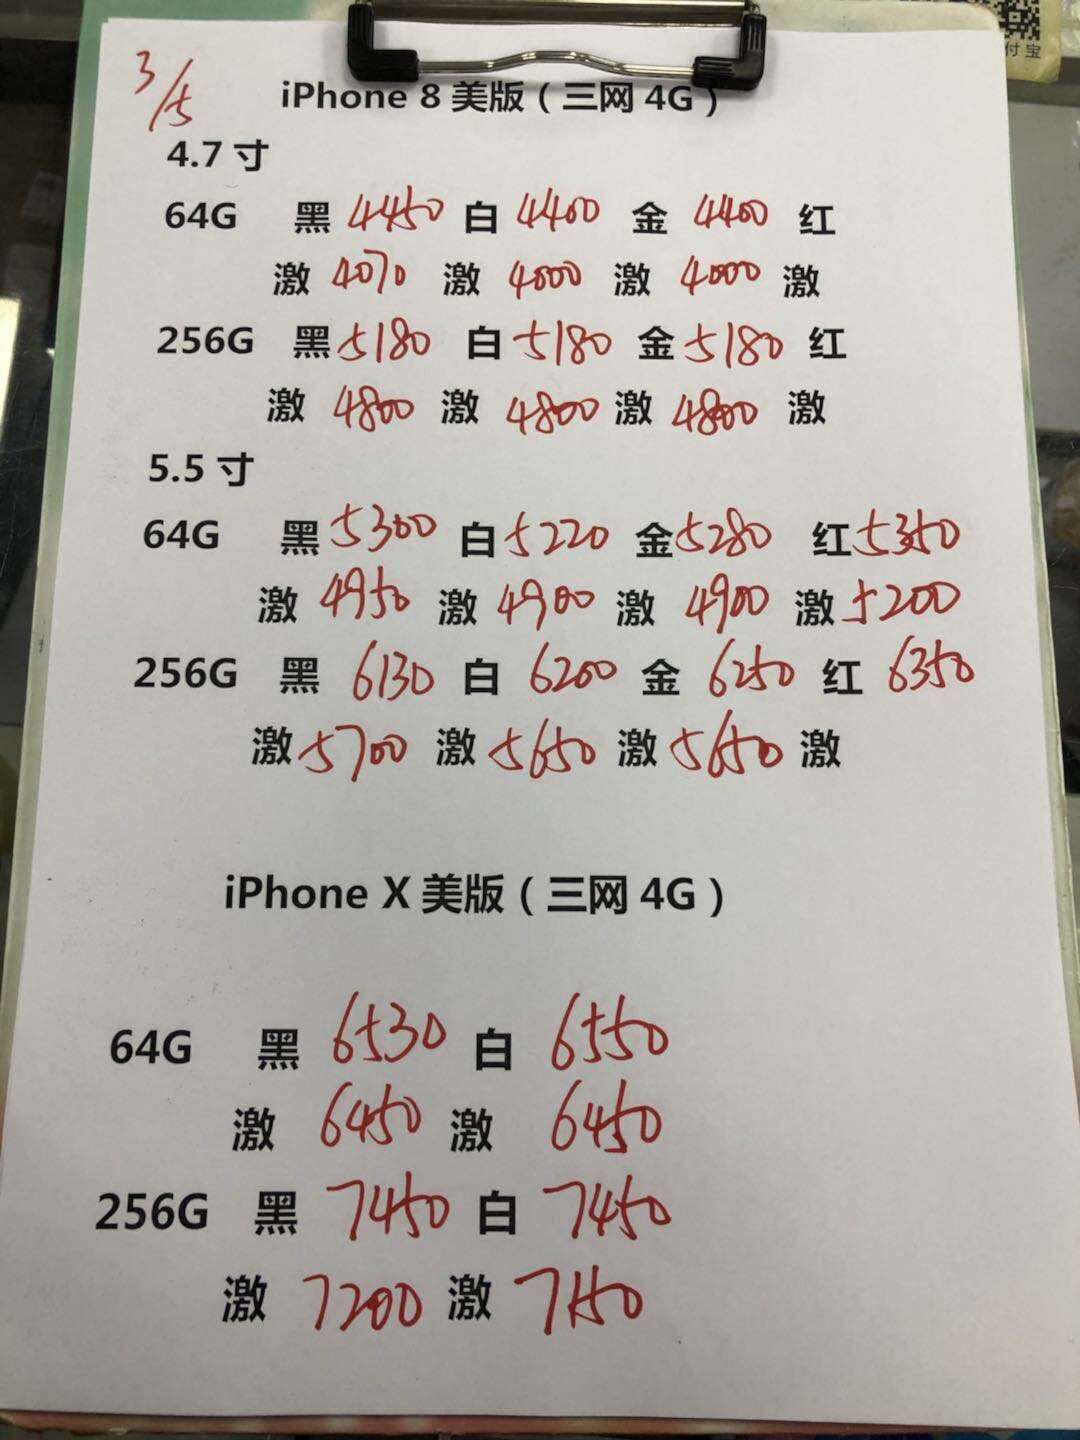 付宝
3/5
iPhone 8 美版（三网 4G）
4.7 寸
64G 黑 4450 白 4400 金 4400 红
激 4070 激 4000 激 4000 激
256G 黑 5180 白 5180 金 5180 红
激 4800 激 4800 激 4800 激
5.5 寸
64G 黑 5300 白 5220 金 5280 红 5350
激 4950 激 4900 激 4900 激 5200
256G 黑 6130 白 6200 金 6250 红 6350
激 5700 激 5650 激 5650 激
iPhone X 美版（三网 4G）
64G 黑 6530 白 6550
激 6450 激 6450
256G 黑 7450 白 7450
激 7200 激 7150